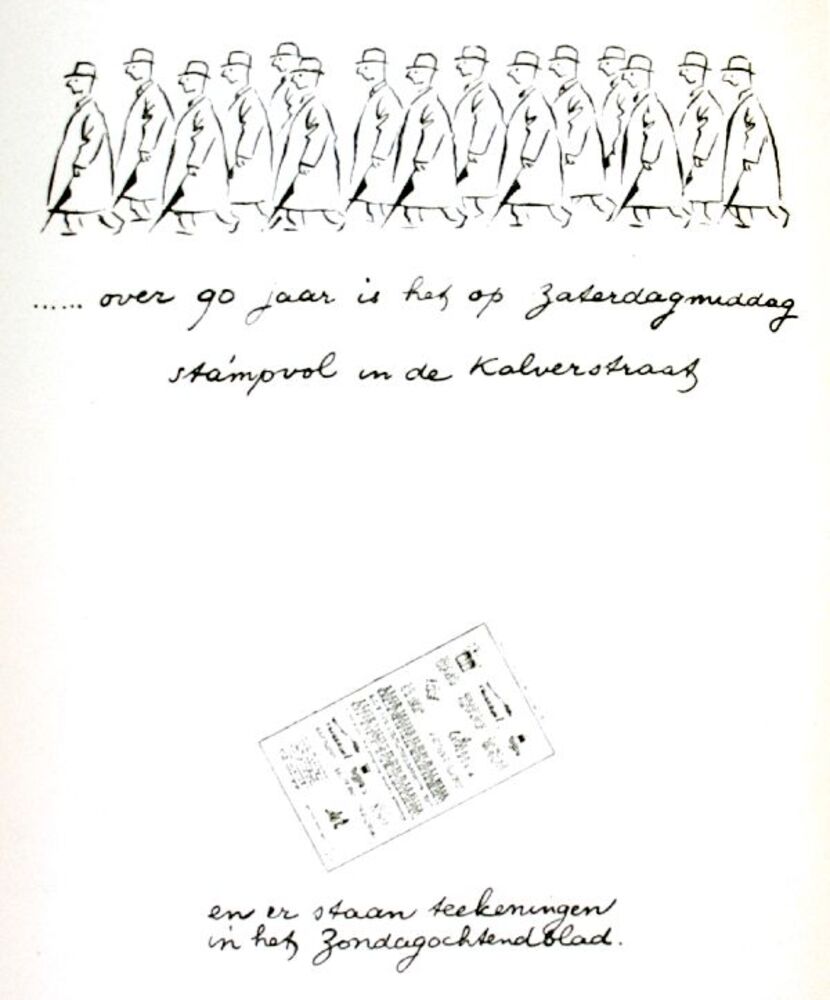 ...... over 90 jaar is het op Zaterdagmiddag
stampvol in de Kalverstraat
en er staan teekeningen
in het Zondagochtendblad.